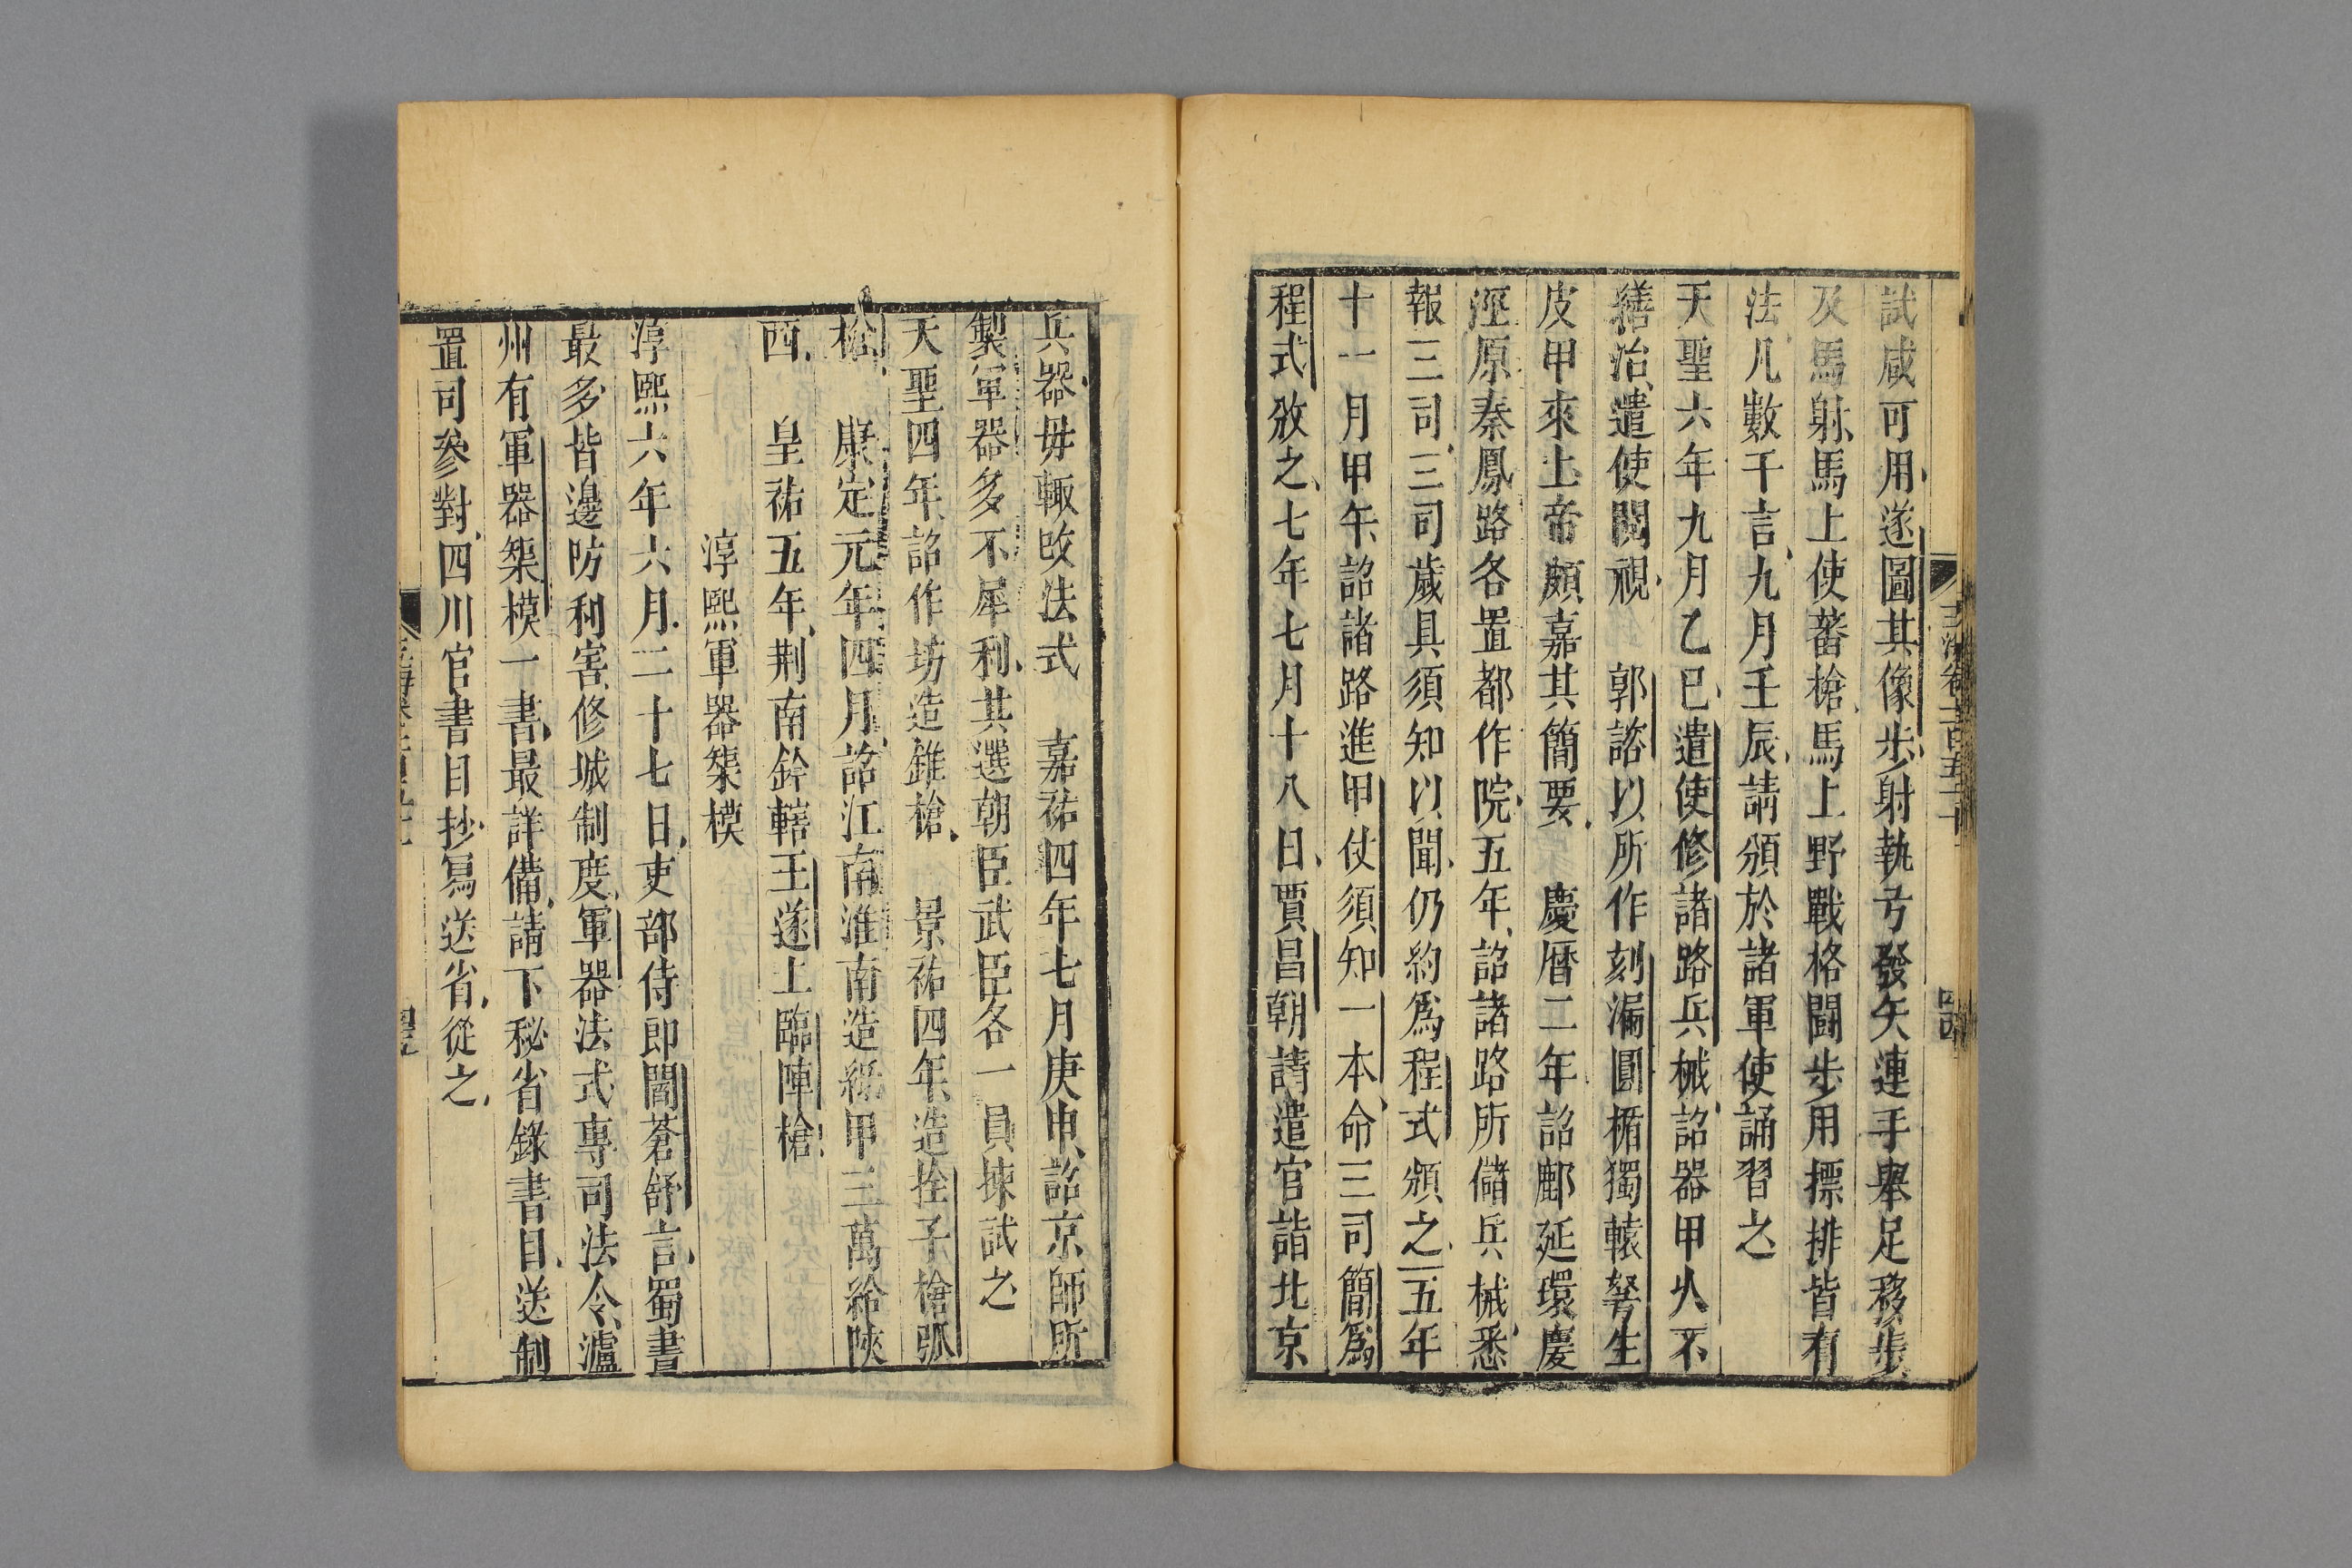 試咸可用遂圖其像步射執弓發矢連手舉足移步
及馬射馬上使蕃槍馬上野戰格鬬步用摽排皆有
法凡數千言九月壬辰請頒於諸軍使誦習之
天聖六年九月乙巳遣使修諸路兵械詔器甲乆不
繕治遣使閱視　郭諮以所作刻漏圓楯獨轅弩生
皮甲來上帝頗嘉其簡要　慶曆二年詔鄜延環慶
涇原秦鳳路各置都作院五年詔諸路所儲兵械悉
報三司三司歲具須知以聞仍約爲程式頒之五年
十一月甲午詔諸路進甲仗須知一本命三司簡爲
程式攽之七年七月十八日賈昌朝請遣官詣北京
玉海卷一百五十
四四
兵器毋輒改法式　嘉祐四年七月庚申詔京師所
製軍器多不犀利其選朝臣武臣各一員揀試之
天聖四年詔作坊造錐槍　景祐四年造拴子槍弧
槍　康定元年四月詔江南淮南造紙甲三萬給陝
西　皇祐五年荆南鈐轄王遂上臨陣槍
淳熙軍器榘模
淳熙六年六月二十七日吏部侍郎閻蒼舒言蜀書
最多皆邊防利害修城制度軍器法式專司法令瀘
州有軍器榘模一書最詳備請下秘省錄書目送制
置司參對四川官書目抄寫送省從之